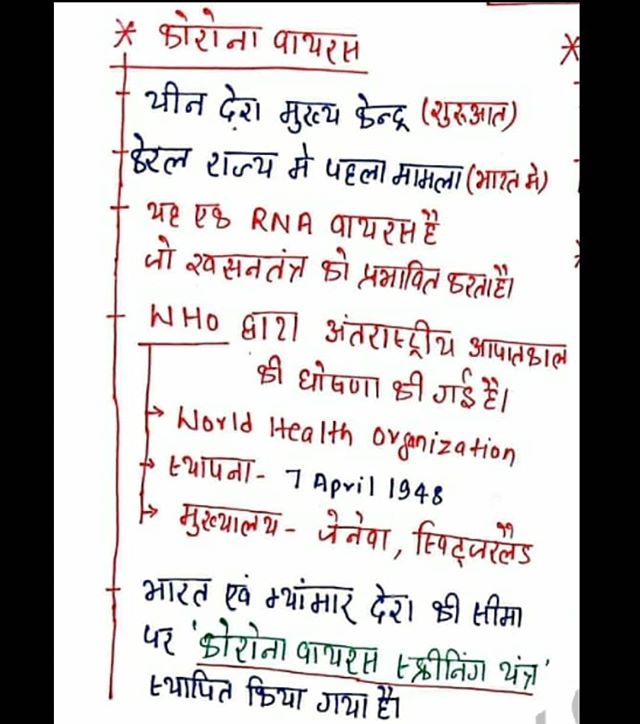 * कोरोना वायरस
*
चीन देश मुख्य केन्द्र (शुरूआत)
केरल राज्य मे पहला मामला (भारत मे)
यह एक RNA वायरस है
जो श्वसनतंत्र को प्रभावित करता है।
WHO द्वारा अंतराष्ट्रीय आपातकाल
की घोषणा की गई है।
→ World Health Organization
→ स्थापना - 7 April 1948
→ मुख्यालय - जेनेवा, स्विट्जरलैंड
भारत एवं म्यांमार देश की सीमा
पर 'कोरोना वायरस स्क्रीनिंग यंत्र'
स्थापित किया गया है।